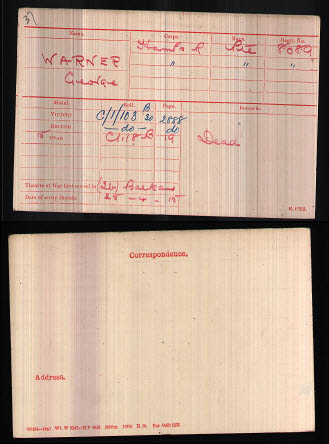 3)
Name. Corps. Rank. Regtl. No.
WARNER Hants R Pte 8089
George " " "
Medal. Roll. Page. Remarks.
VICTORY C/1/103 B 30 2888
BRITISH —do— do
15 STAR C/1/8 B 19 Dead
Theatre of War first served in (2b) Balkans
Date of entry therein 25-4-15
K. 1380.
Correspondence.
Address.